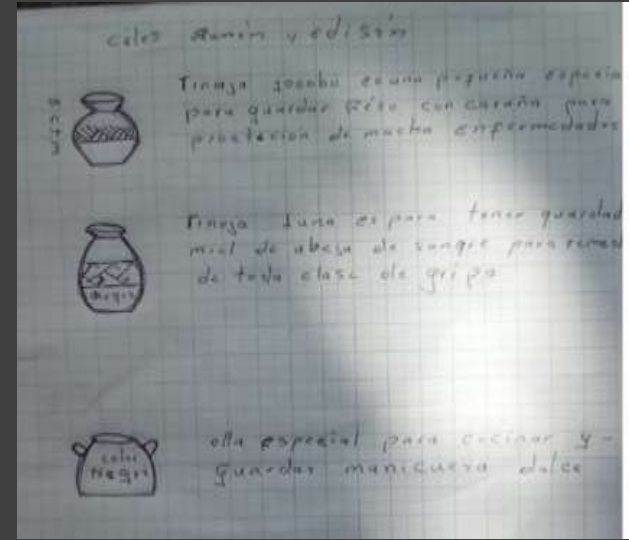 Ramón y edisón
Tinaja es una pequeña
para guardar con caraña para
de mucha enfermedades
Tinaja Luna es para tener guardad
miel de abeja de sangre para remed
de toda clase de gripa
negro
olla especial para cocinar y -
guardar manicuera dulce
color
Negro